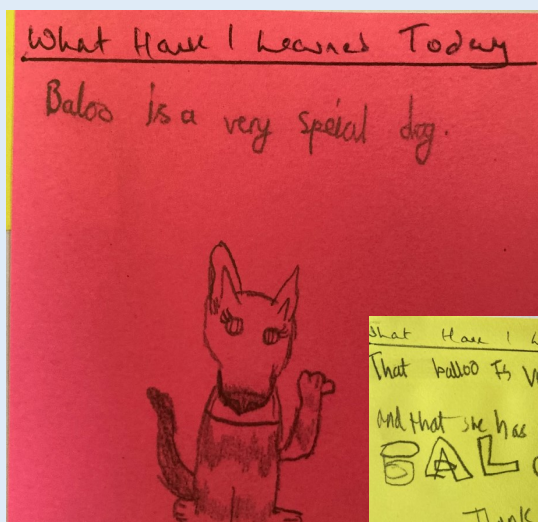 What Have I Learned Today
Baloo is a very speical dog.
What Have I
That balloo Is
and that she has
BAL
Thank